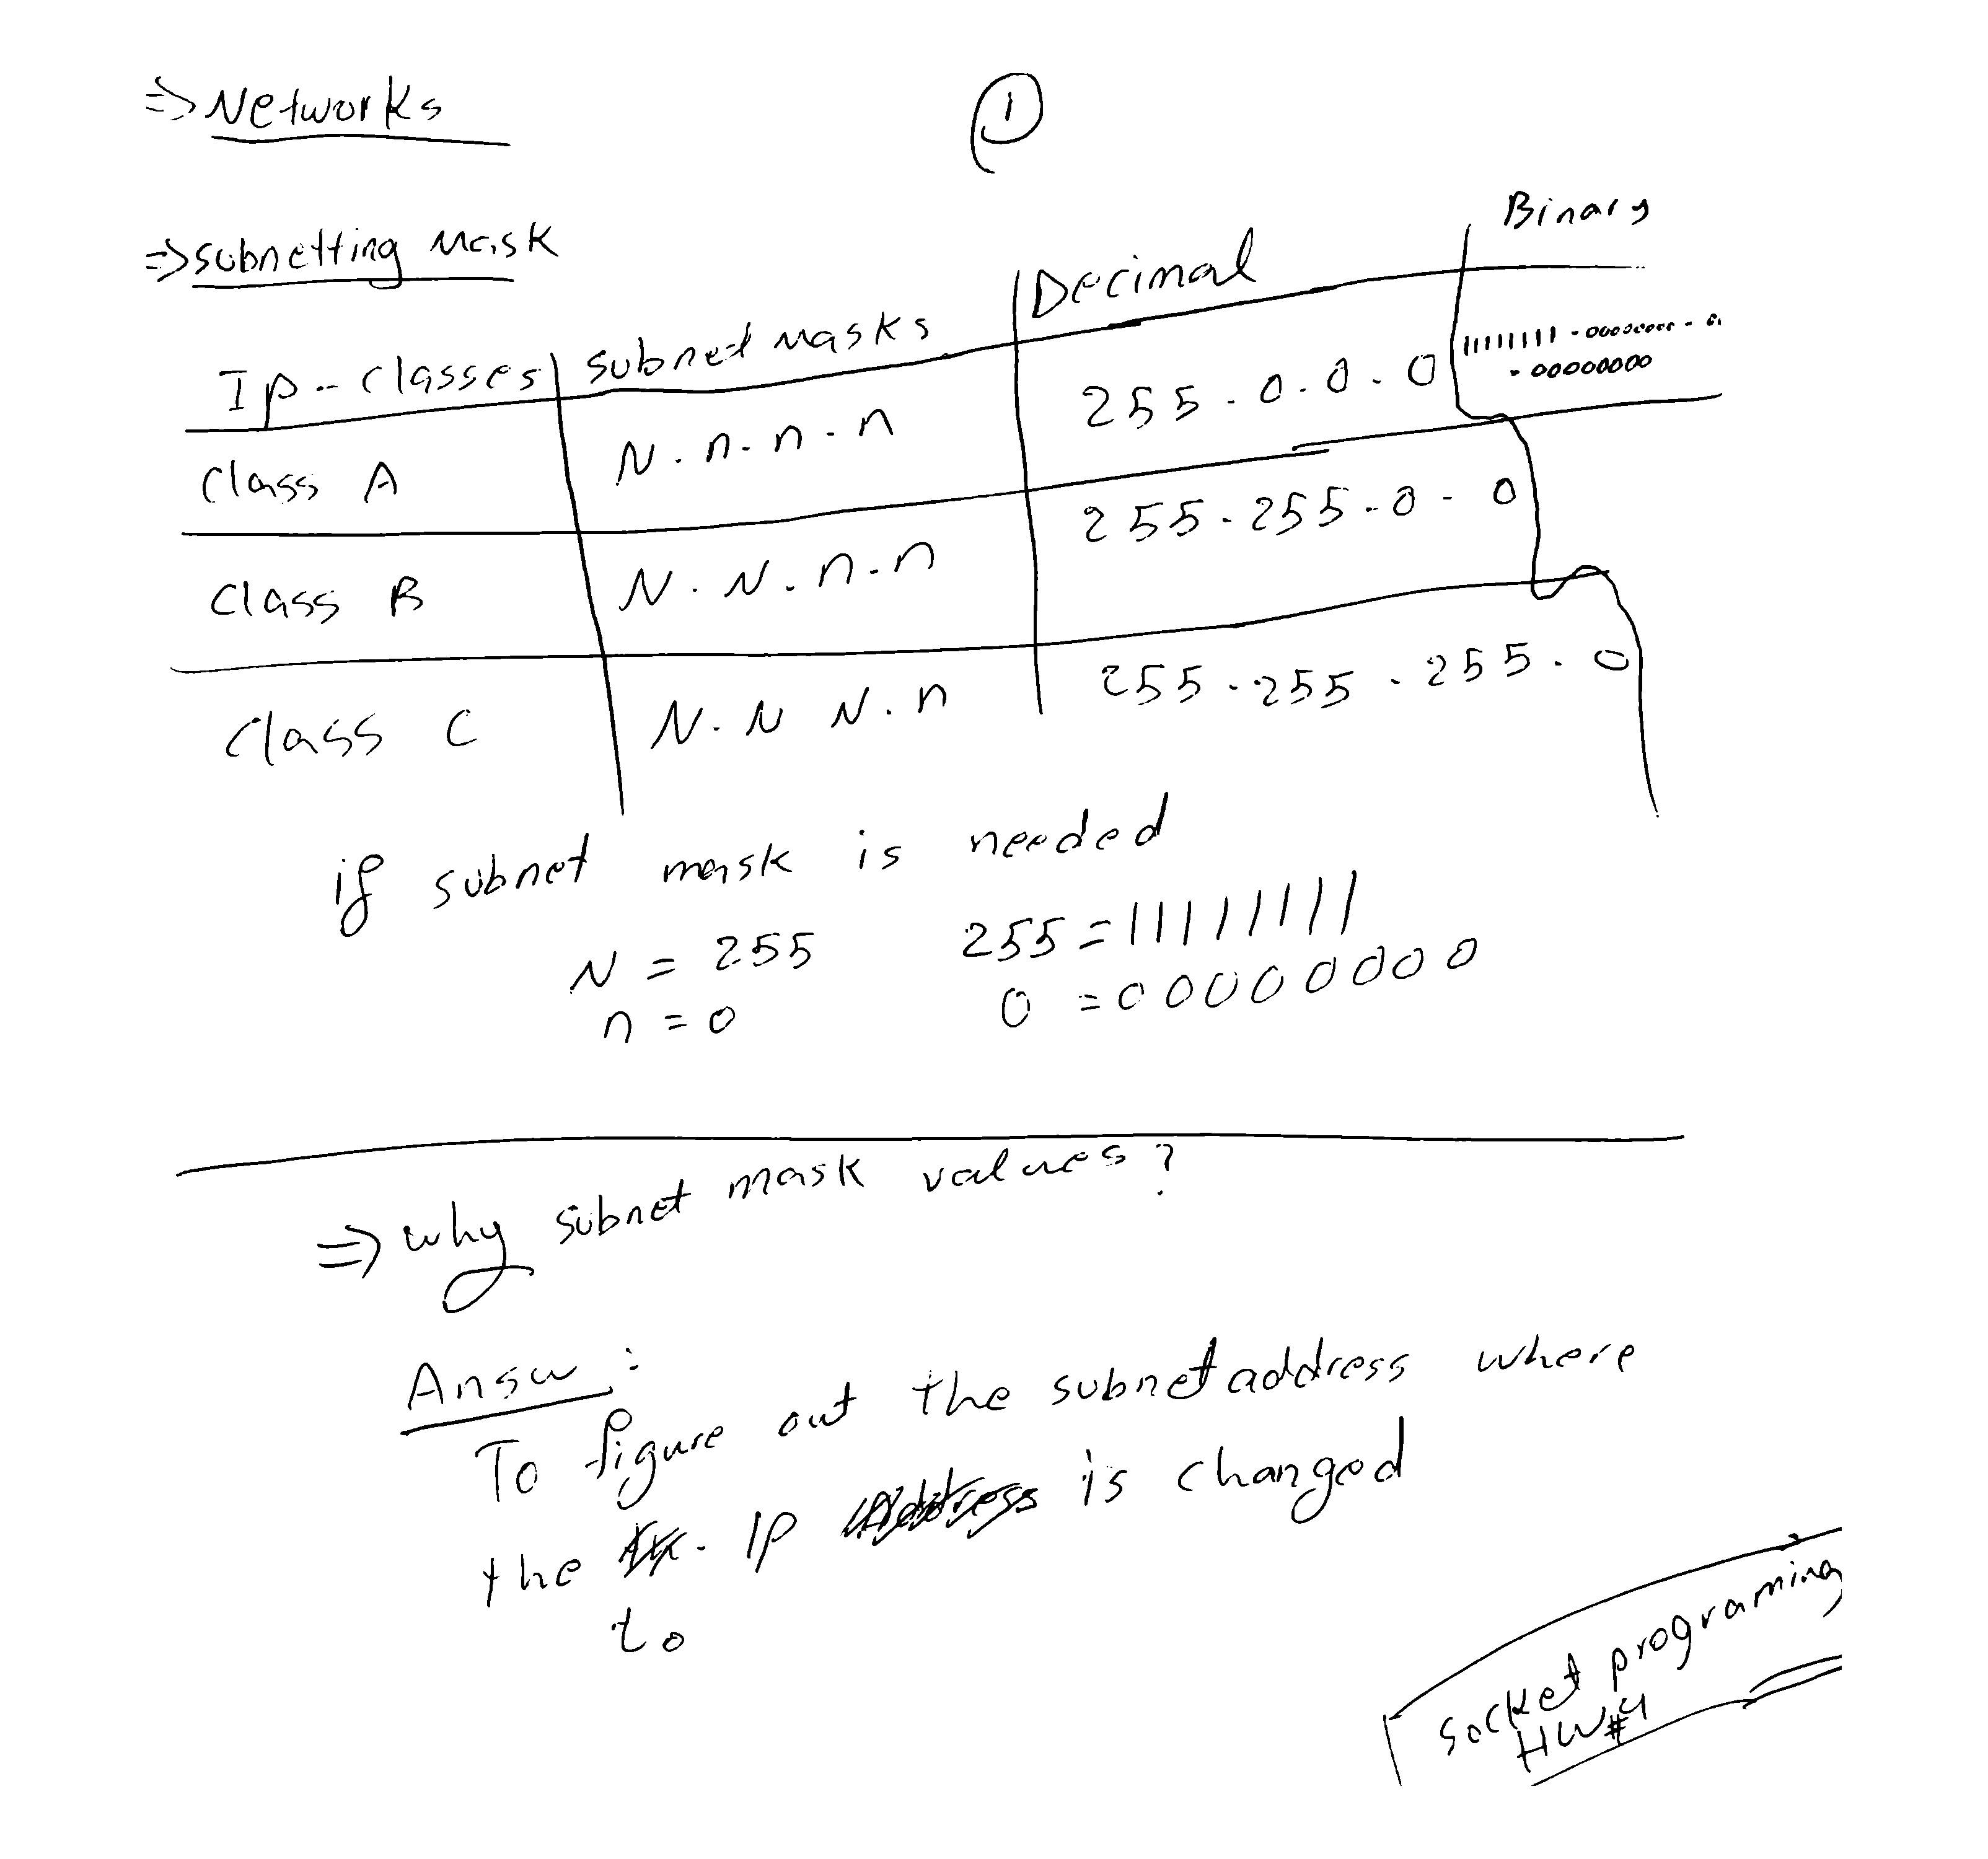 ⇒ Networks
①
⇒ subnetting mask
Ip-classes | subnet masks | Decimal | Binary
Class A | N.n.n.n | 255.0.0.0 | 11111111.00000000.
.00000000
Class B | N.N.n.n | 255.255.0.0
Class C | N.N N.n | 255.255.255.0
if subnet mask is needed
N = 255 255 = 11111111
n = 0 0 = 00000000
⇒ why subnet mask values?
Answ:
To figure out the subnet address where
the IP is changed
to
Socket programing
HW#4